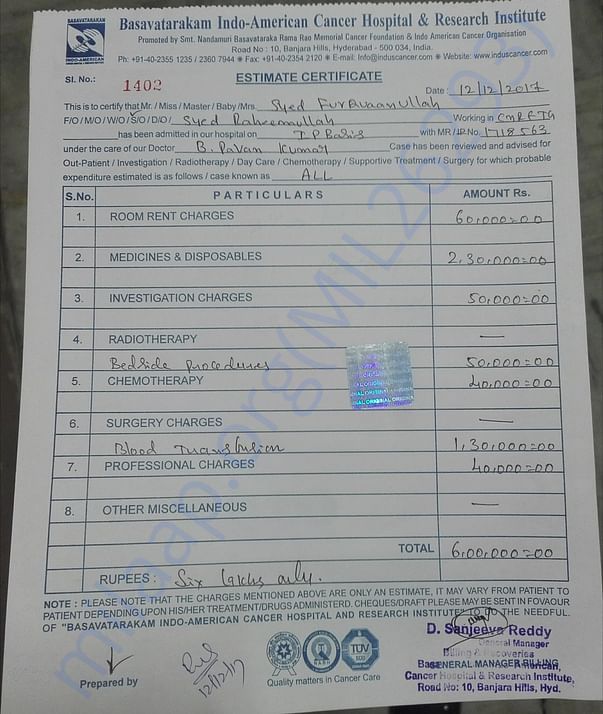 BASAVATARAKAM
INDO-AMERICAN
Basavatarakam Indo-American Cancer Hospital & Research Institute
Promoted by Smt. Nandamuri Basavataraka Rama Rao Memorial Cancer Foundation & Indo American Cancer Organisation
Road No : 10, Banjara Hills, Hyderabad - 500 034, India.
Ph: +91-40-2355 1235 / 2360 7944 * Fax: +91-40-2354 2120 * E-mail: Info@induscancer.com * Website: www.induscancer.com
Sl. No.: 1402
ESTIMATE CERTIFICATE
Date : 12/12/2017
This is to certify that Mr. / Miss / Master / Baby /Mrs. Syed Furqaanullah
F/O / M/O / W/O / S/O / D/O / Syed Raheemullah Working in
has been admitted in our hospital on I.P Basis with MR / IP.No. 1718563
under the care of our Doctor B. Pavan Kumar Case has been reviewed and advised for
Out-Patient / Investigation / Radiotherapy / Day Care / Chemotherapy / Supportive Treatment / Surgery for which probable
expenditure estimated is as follows / case known as ALL
S.No. PARTICULARS AMOUNT Rs.
1. ROOM RENT CHARGES 60,000=00
2. MEDICINES & DISPOSABLES 2,30,000=00
3. INVESTIGATION CHARGES 50,000=00
4. RADIOTHERAPY —
Bedside procedures 50,000=00
5. CHEMOTHERAPY 40,000=00
6. SURGERY CHARGES —
Blood Transfusion 1,30,000=00
7. PROFESSIONAL CHARGES 40,000=00
8. OTHER MISCELLANEOUS —
TOTAL 6,00,000=00
RUPEES : Six lakhs only.
NOTE : PLEASE NOTE THAT THE CHARGES MENTIONED ABOVE ARE ONLY AN ESTIMATE, IT MAY VARY FROM PATIENT TO
PATIENT DEPENDING UPON HIS/HER TREATMENT/DRUGS ADMINISTERD. CHEQUES/DRAFT PLEASE MAY BE SENT IN FOVAOUR
OF "BASAVATARAKAM INDO-AMERICAN CANCER HOSPITAL AND RESEARCH INSTITUTE" TO DO THE NEEDFUL.
D. Sanjeeva Reddy
General Manager
Billing & Recoveries
GENERAL MANAGER BILLING
American,
Cancer Hospital & Research Institute,
Road No: 10, Banjara Hills, Hyd.
Prepared by
12/12/17
NABH
TUV
Quality matters in Cancer Care
milaap.org(MIL262293)